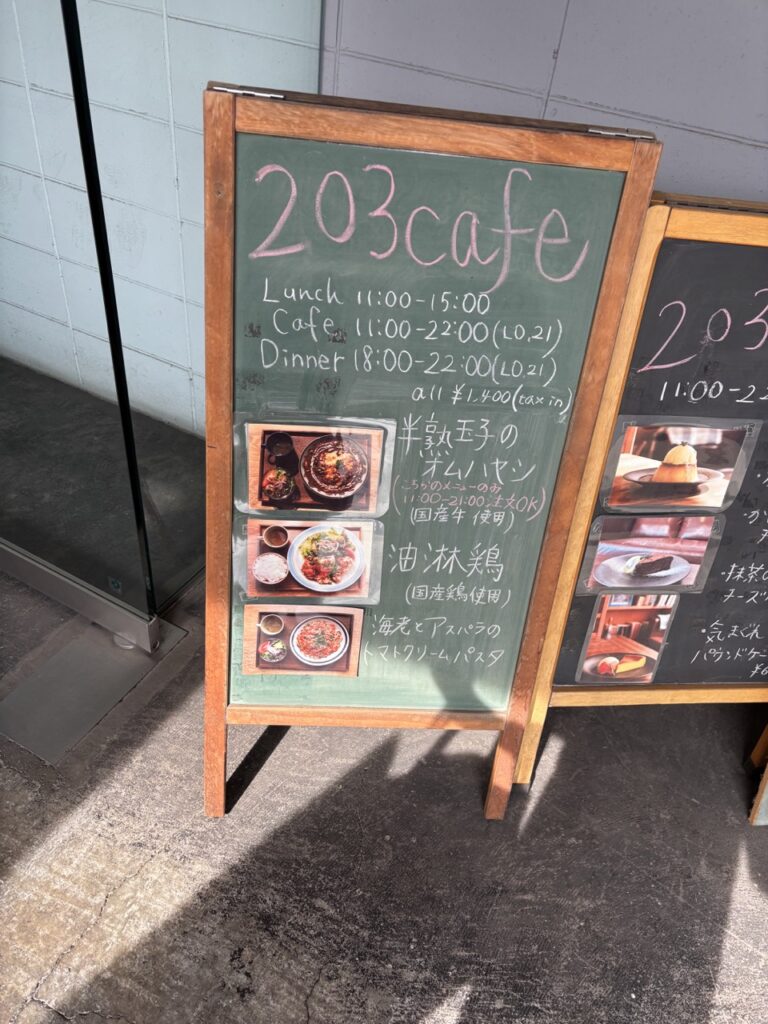 203cafe
Lunch 11:00-15:00
Cafe 11:00-22:00(L.O.21)
Dinner 18:00-22:00(L.O.21)
all ¥1,400(tax in)
半熟玉子の
オムハヤシ
(こちらのメニューのみ
11:00-21:00注文OK)
(国産牛使用)
油淋鶏
(国産鶏使用)
海老とアスパラの
トマトクリームパスタ
203
11:00-22
・抹茶の
チーズ
・気まぐれ
パウンドケー